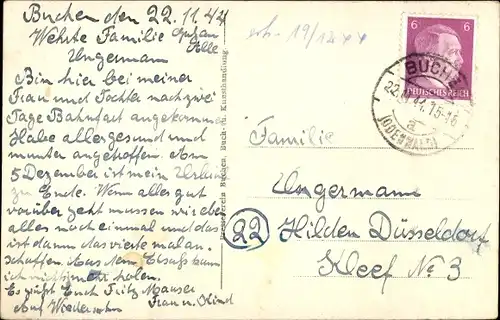 Buchen den 22.11.44
Wehrte Familie
Ungermann
Bin hier bei meiner
Frau und Tochter nach zwei
Tage Bahnfart angekommen
Habe alle gesund und
munter angetroffen. Am
5 Dezember ist mein Urlaub
zu Ende. Wenn alles gut
vorüber geht mussen wir eben
alles noch einmal und das
ist dann das vierte mal an-
schaffen. Aus dem Elsass kann
ich nichts mehr holen.
Es grüßt Euch Fritz Mauser
Auf Wiedersehn Frau u. Kind
erh. 19/12 44
6 6
DEUTSCHES REICH
BUCHEN
22.11.44.15-16
a
(ODENWALD)
Familie
Ungermann
22 Hilden Düsseldorf
Kleef No 3
Buch- u. Kunsthandlung.